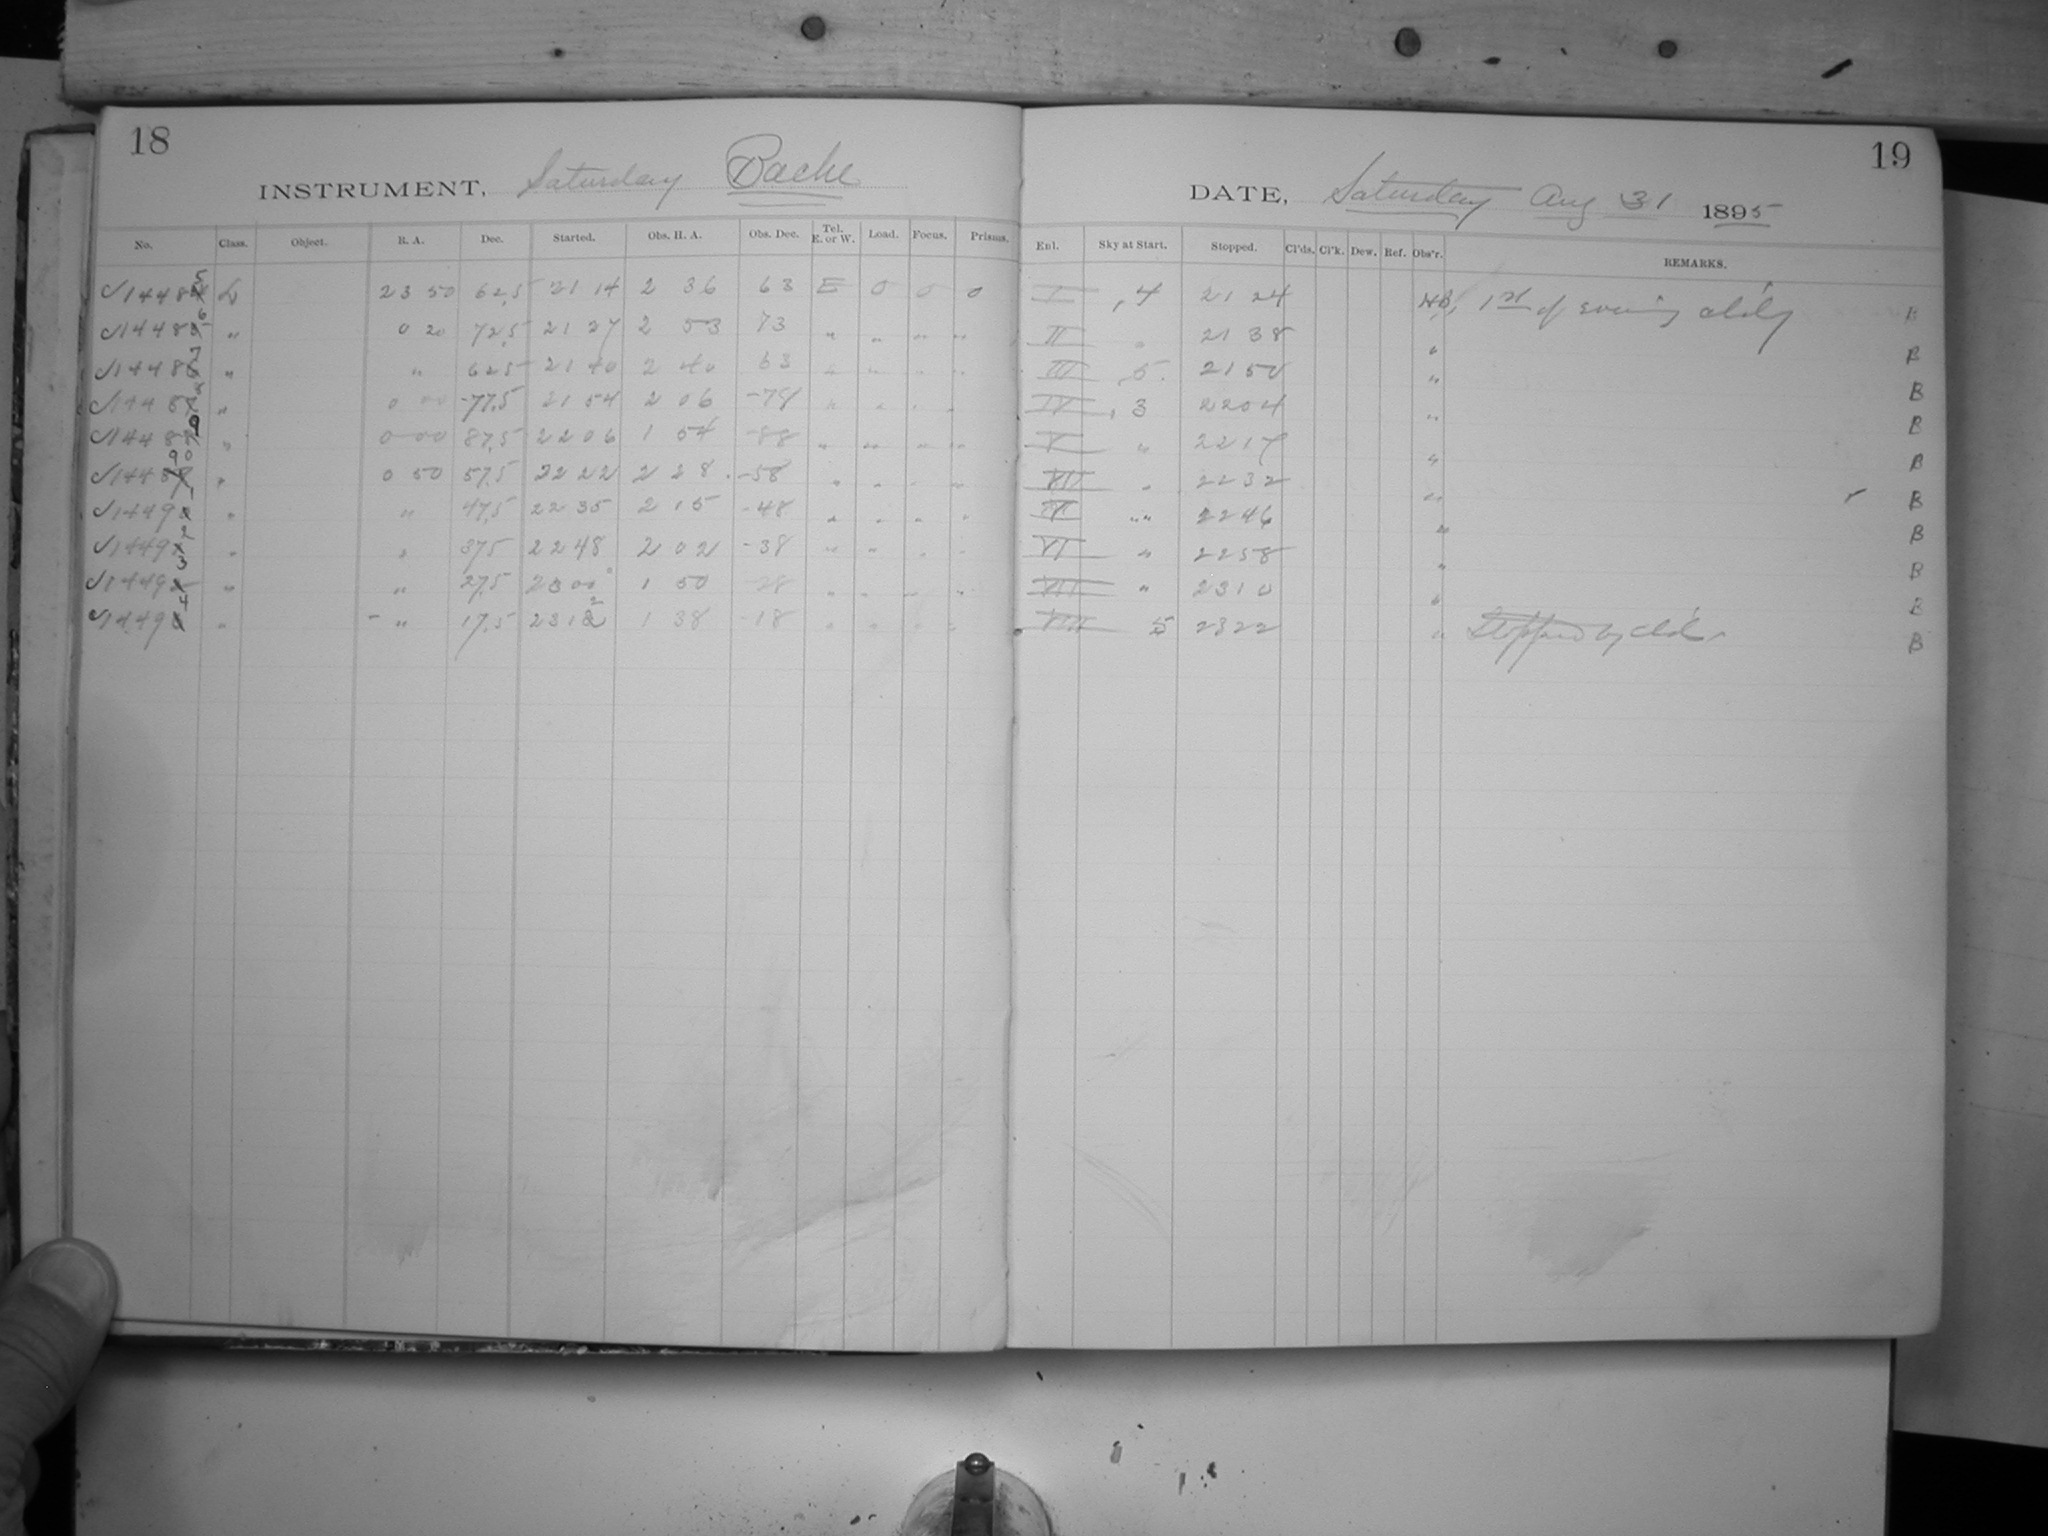 18
INSTRUMENT, Saturday Bache
No. Class. Object. R. A. Dec. Started. Obs. H. A. Obs. Dec. Tel. E. or W. Load. Focus. Prisms.
14485 L 23 50 62.5 21 14 2 36 63 E 0 0 0
14486 " 0 20 72.5 21 27 2 53 73 " " " "
14487 " " 62.5 21 40 2 40 63 " " " "
14488 " 0 00 -77.5 21 54 2 06 -78 " " " "
14489 " 0 00 87.5 22 06 1 54 -88 " " " "
14490 " 0 50 57.5 22 22 2 28 -58 " " " "
14491 " " 47.5 22 35 2 15 -48 " " " "
14492 " " 37.5 22 48 2 02 -38 " " " "
14493 " " 27.5 23 00 1 50 -28 " " " "
14494 " - " 17.5 23 12 1 38 -18 " " " "
19
DATE, Saturday Aug 31 1895
Enl. Sky at Start. Stopped. Cl'ds. Cl'k. Dew. Ref. Obs'r. REMARKS.
I ,4 21 24 1st of evening cldy B
II " 21 38 " B
III ,5 21 50 " B
IV ,3 22 04 " B
V " 22 17 " B
" 22 32 " B
" " 22 46 " B
VI " 22 58 " B
VII " 23 10 " B
VIII 5 23 22 " Stopped by cld. B